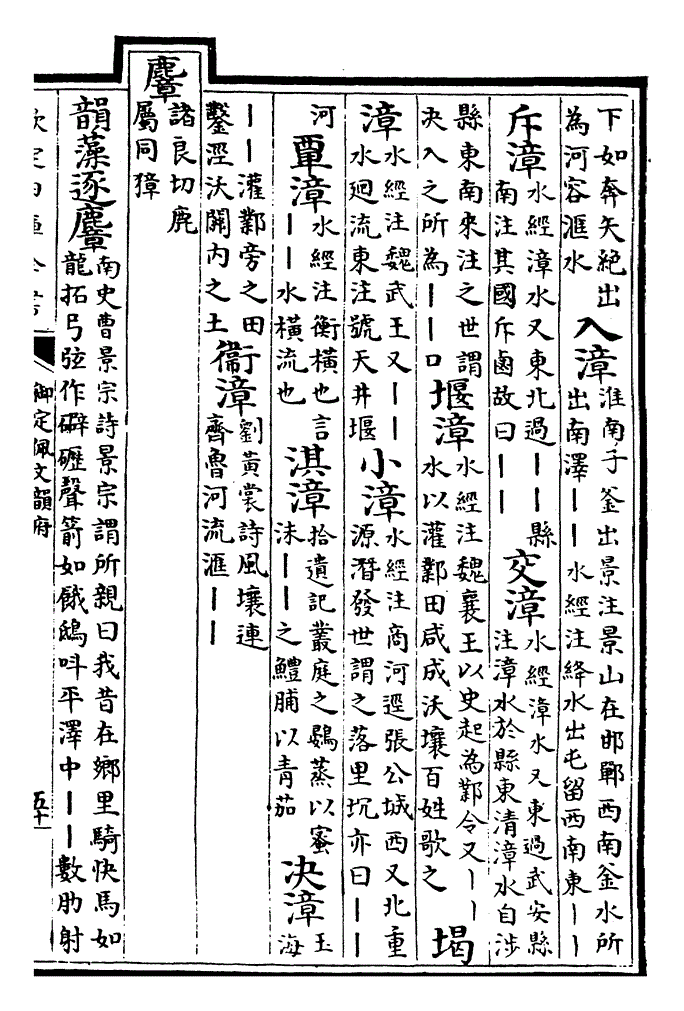 下如奔矢絶出
為河容滙水
入漳
淮南子釜出景注景山在邯鄲西南釜水所
出南澤丨丨水經注絳水出屯留西南東丨丨
斥漳
水經漳水又東北過丨丨縣
南注其國斥鹵故曰丨丨
交漳
水經漳水又東過武安縣
注漳水於縣東清漳水自涉
縣東南來注之世謂
决入之所為丨丨口
堰漳
水經注魏襄王以史起為鄴令又丨丨
水以灌鄴田咸成沃壤百姓歌之
堨
漳
水經注魏武王又丨丨
水廻流東注號天井堰
小漳
水經注商河逕張公城西又北重
源潛發世謂之落里坑亦曰丨丨
河
覃漳
水經注衡橫也言
丨丨水橫流也
淇漳
拾遺記叢庭之鷃蒸以蜜
沬丨丨之鱧脯以青茄
决漳
玉
海
丨丨灌鄴旁之田
鑿涇沃關内之土
衞漳
劉黃裳詩風壤連
齊魯河流滙丨丨
麞
諸良切鹿
屬同獐
韻藻逐麞
南史曹景宗詩景宗謂所親曰我昔在鄉里騎快馬如
龍拓弓弦作礔礰聲箭如餓鴟呌平澤中丨丨數肋射
御定佩文韻府
五十